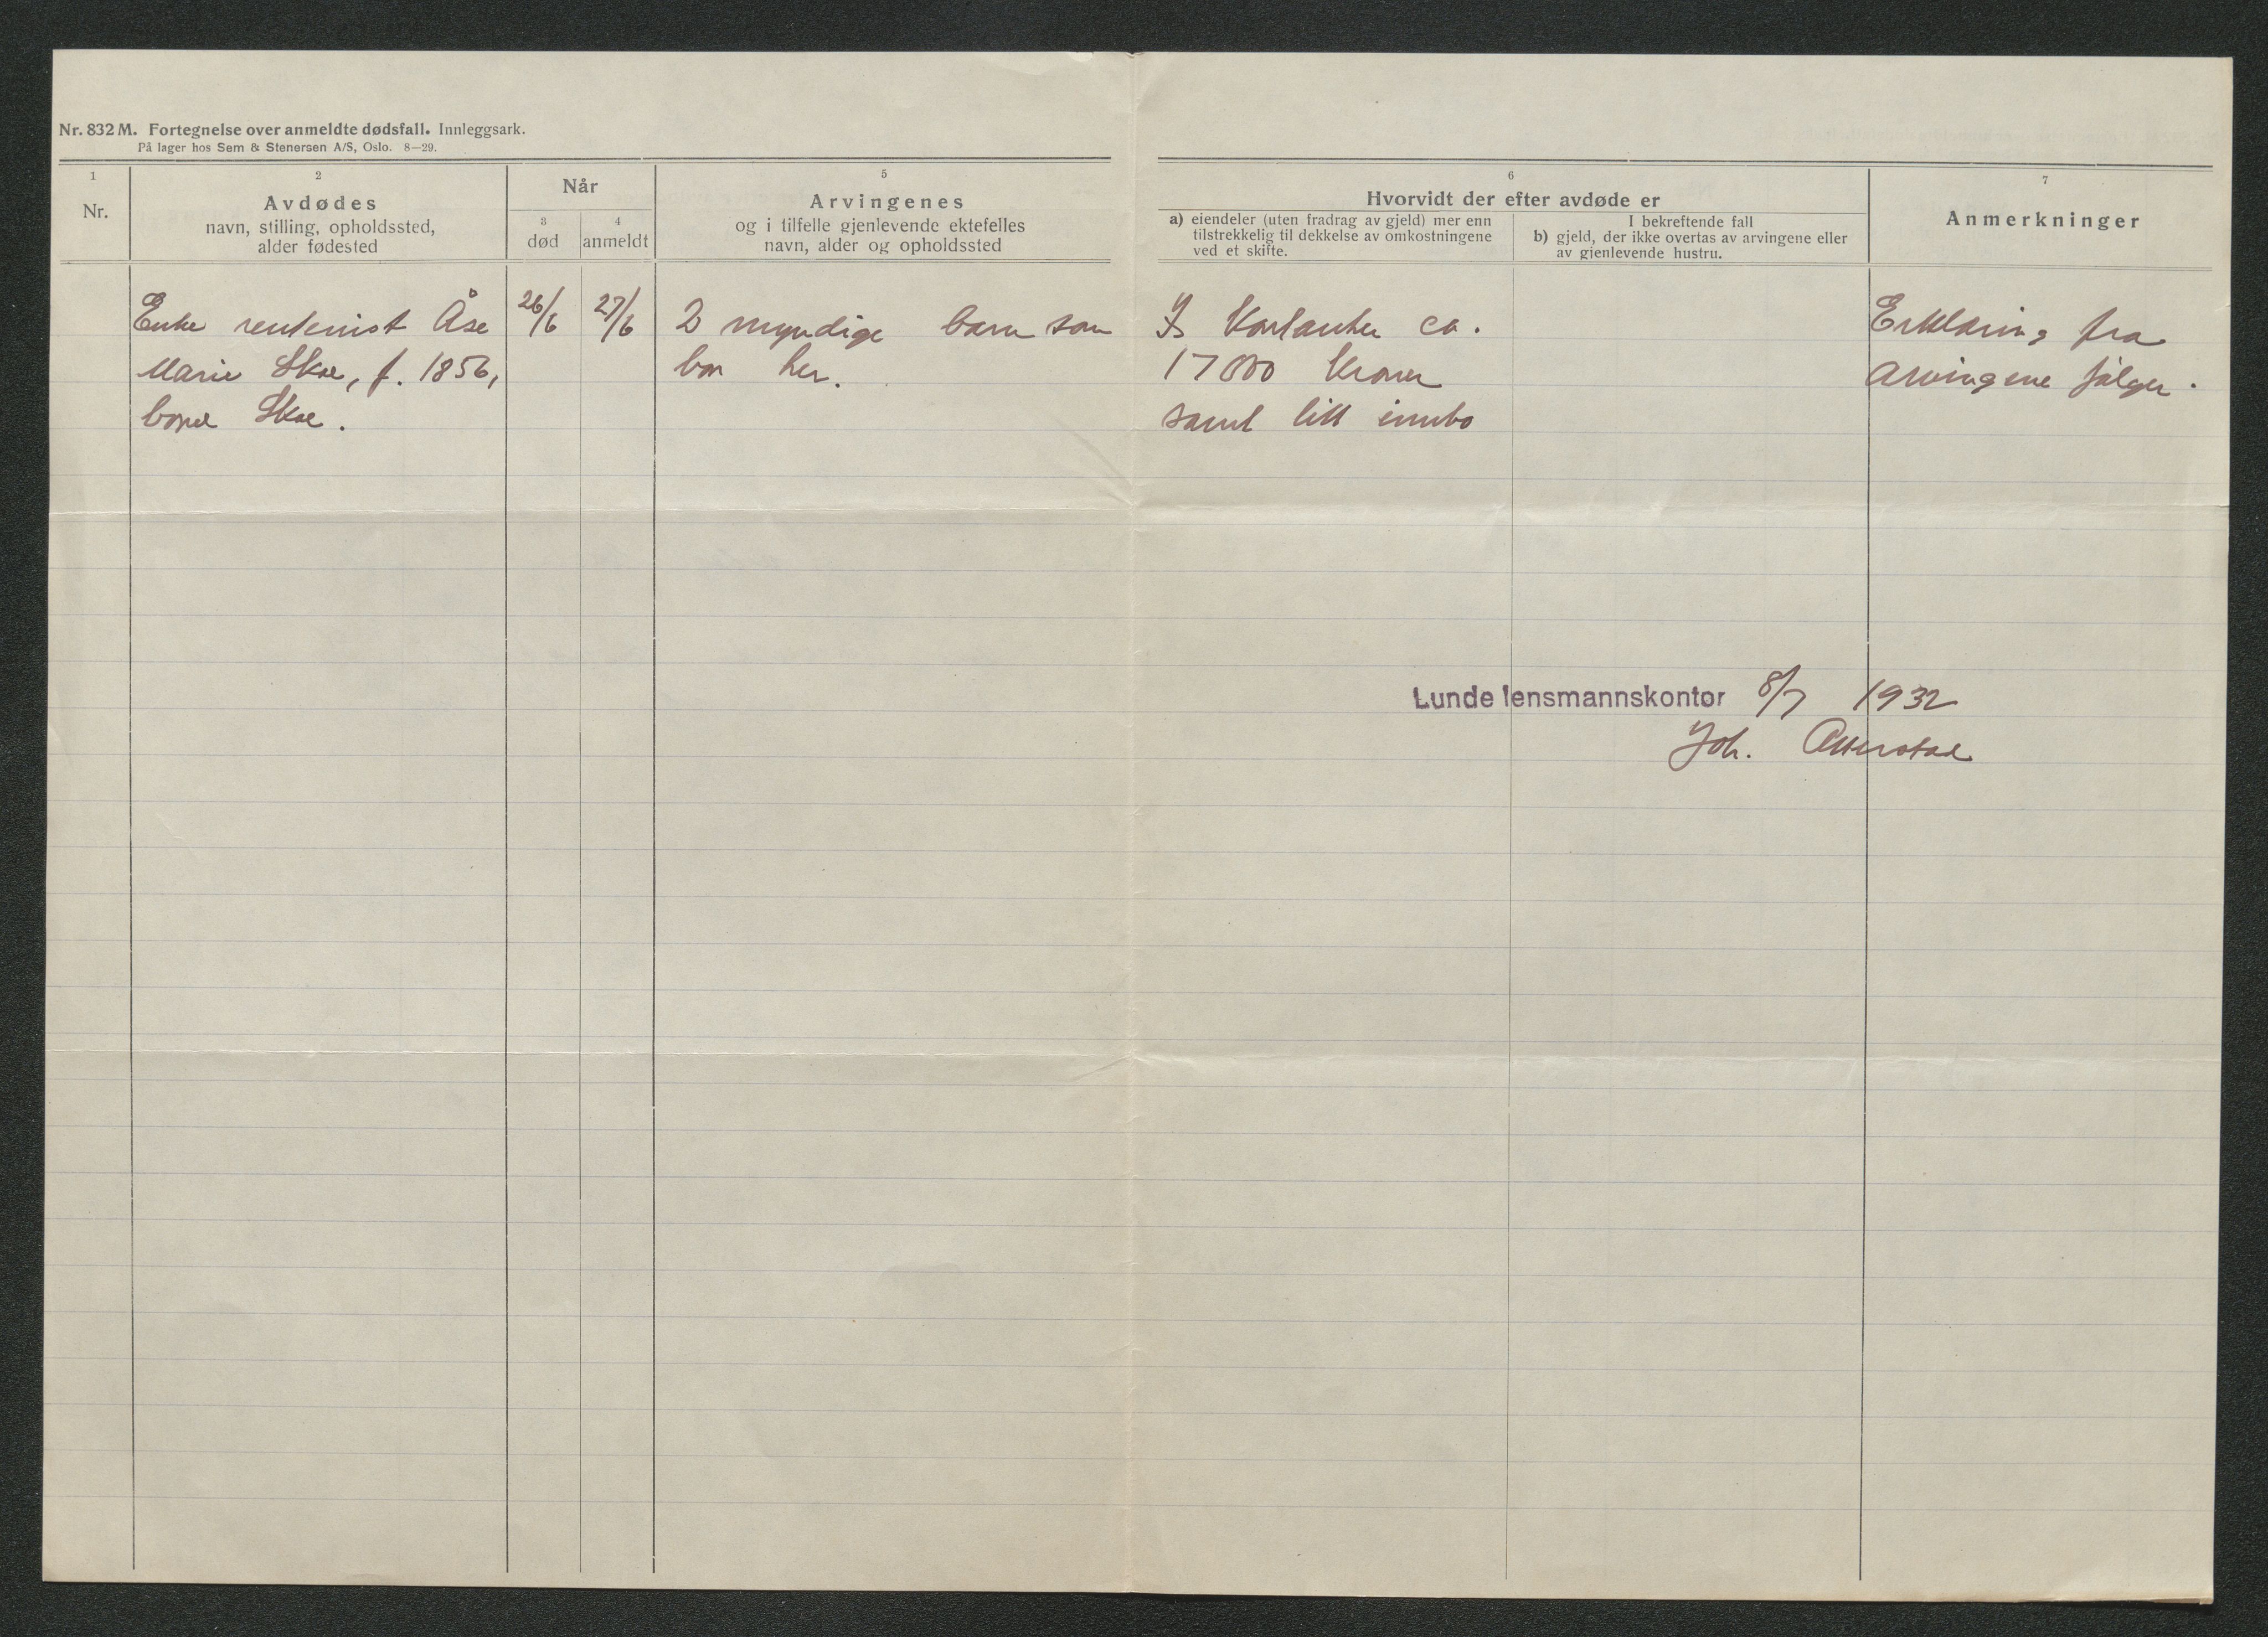 Nr. 832 M. Fortegnelse over anmeldte dødsfall. Innleggsark.
På lager hos Sem & Stenersen A/S, Oslo. 8—29.
1
Nr.
2
Avdødes
navn, stilling, opholdssted,
alder fødested
Når
3
død
4
anmeldt
5
Arvingenes
og i tilfelle gjenlevende ektefelles
navn, alder og opholdssted
6
Hvorvidt der efter avdøde er
a) eiendeler (uten fradrag av gjeld) mer enn
tilstrekkelig til dekkelse av omkostningene
ved et skifte.
I bekreftende fall
b) gjeld, der ikke overtas av arvingene eller
av gjenlevende hustru.
7
Anmerkninger
Enke rentenist Åse
Marie Skoe, f. 1856,
bopel Skoe.
26/6
27/6
2 myndige barn som
bor her.
Is kontanter ca.
17000 kroner
samt litt innbo
Erklæring fra
arvingene følger.
Lunde lensmannskontor 8/7 1932
Joh.